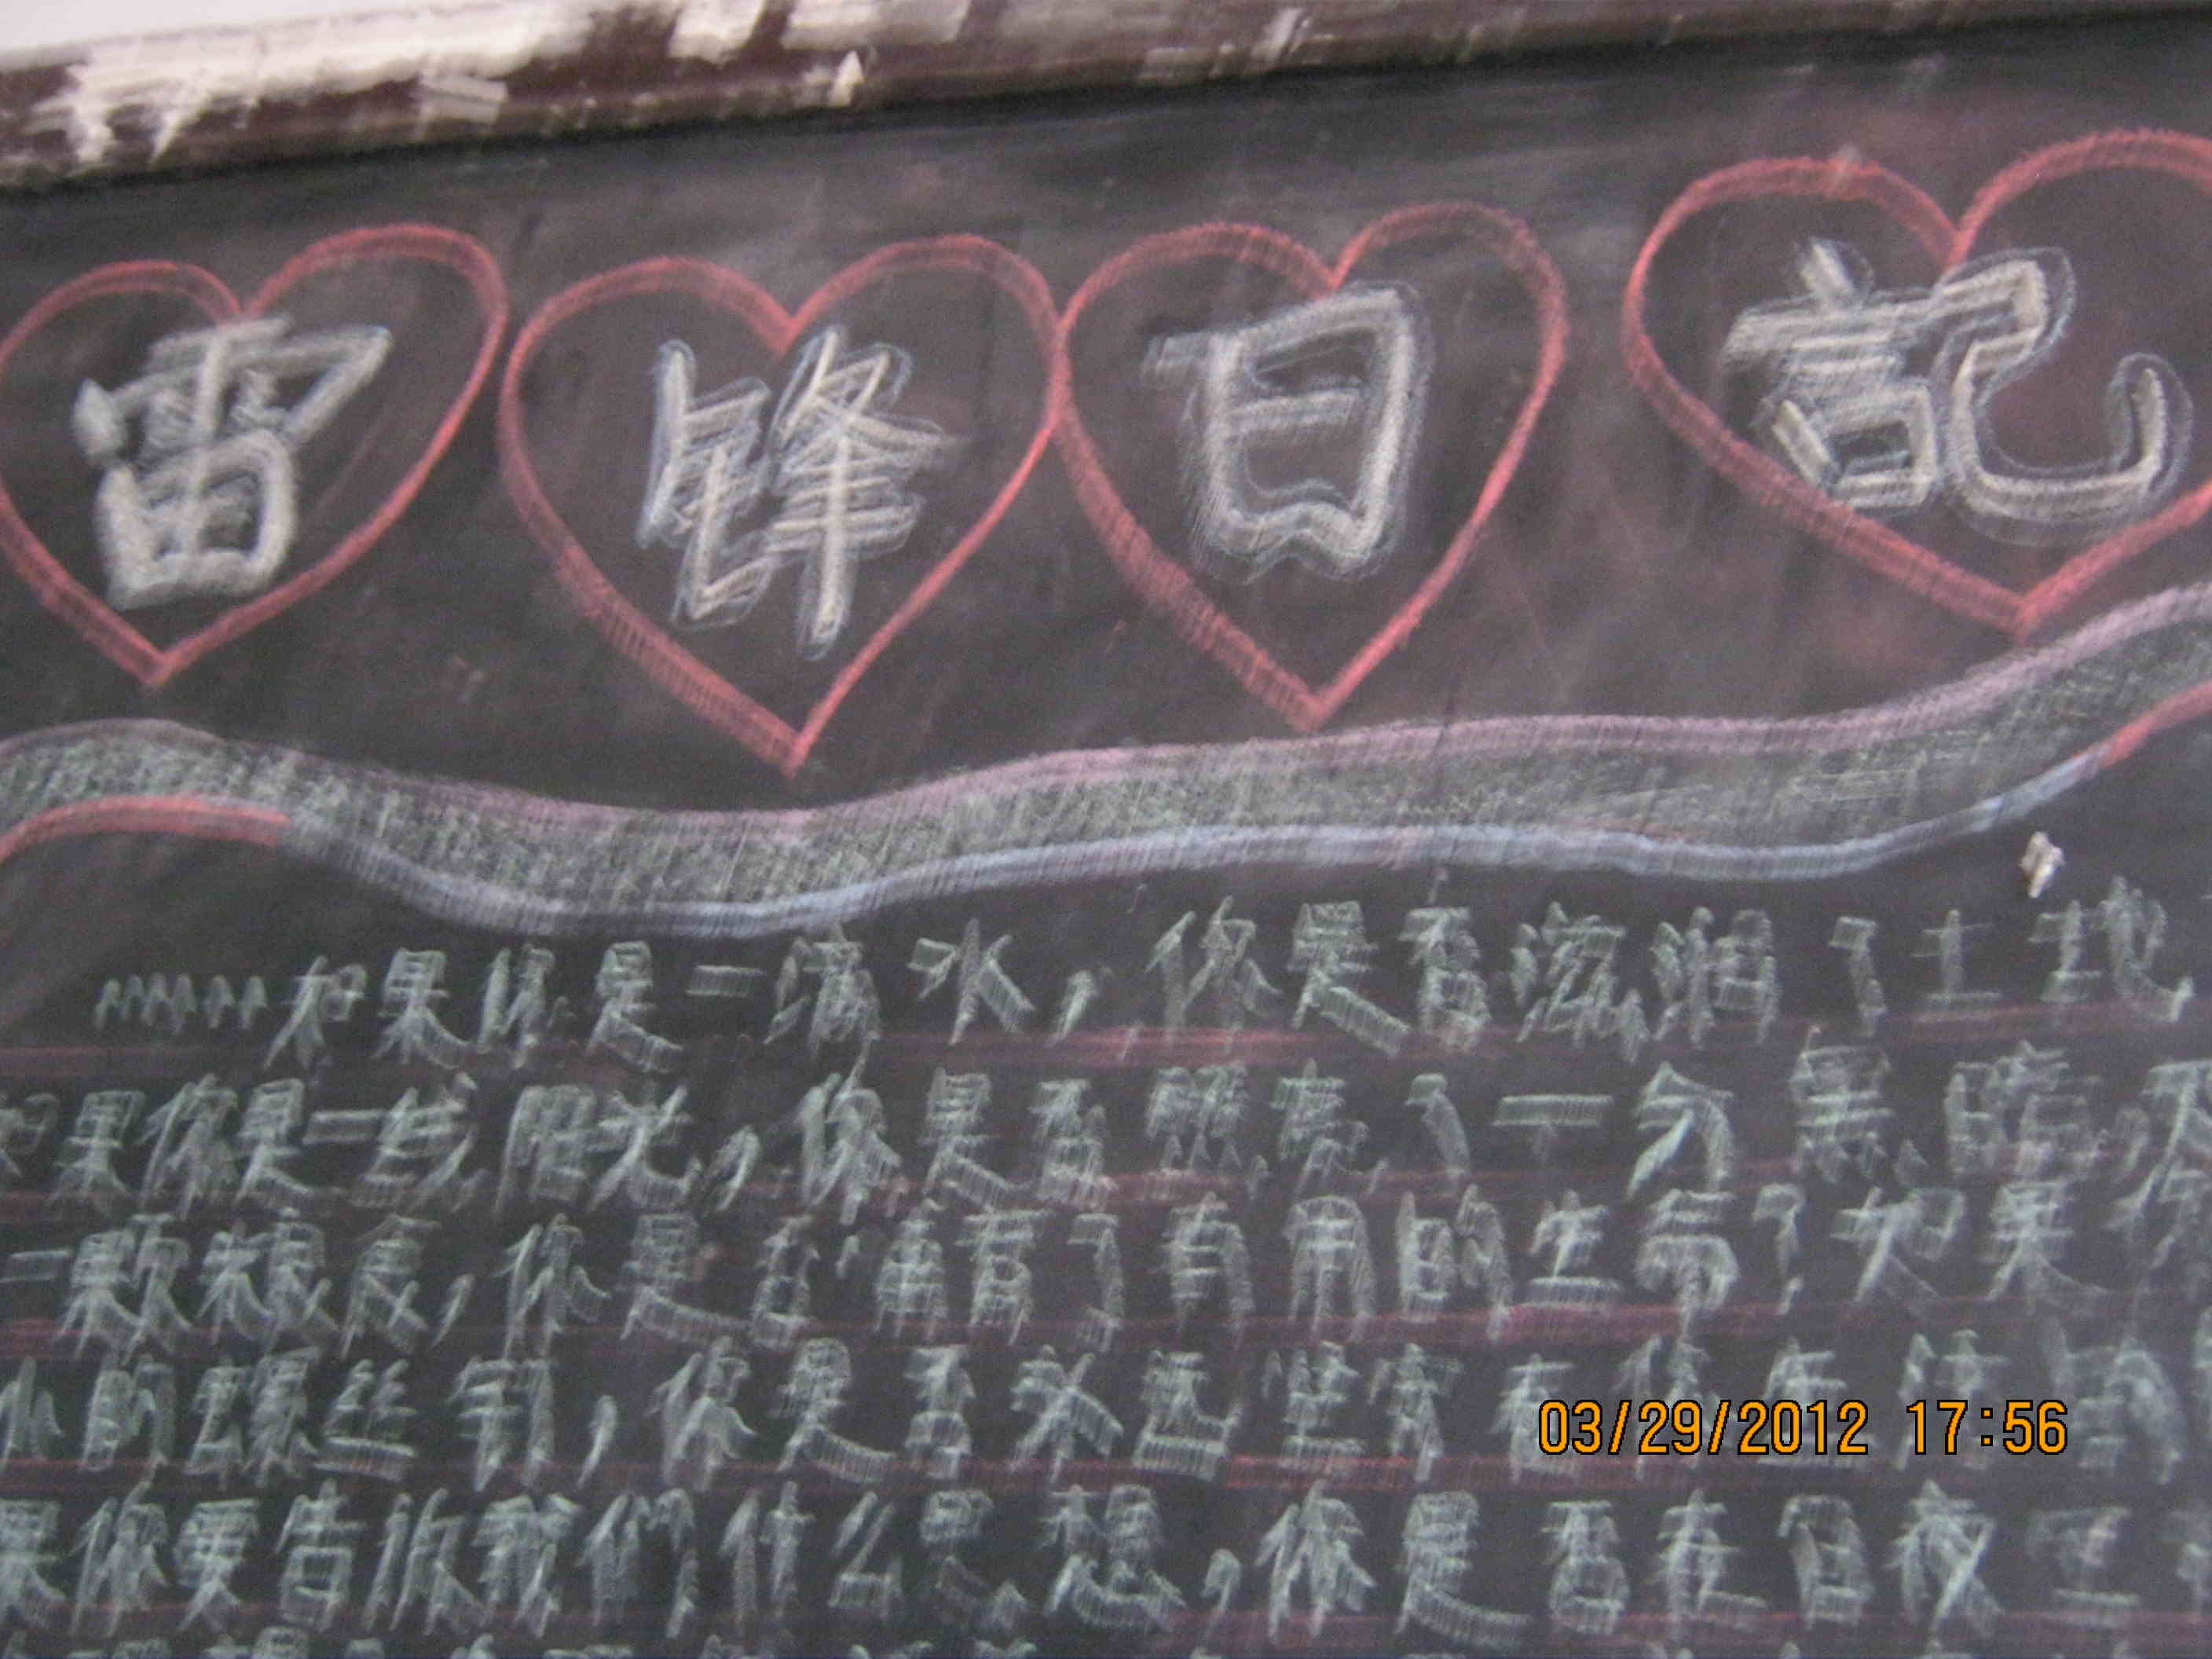 雷锋日記
……如果你是一滴水，你是否滋润了土地
如果你是一线阳光，你是否照亮了一分黑暗，
一颗粮食，你是否哺育了有用的生命？如果
小的螺丝钉，你是否永远坚守在你生活的
果你要告诉我们什么思想，你是否在日夜
03/29/2012 17:56